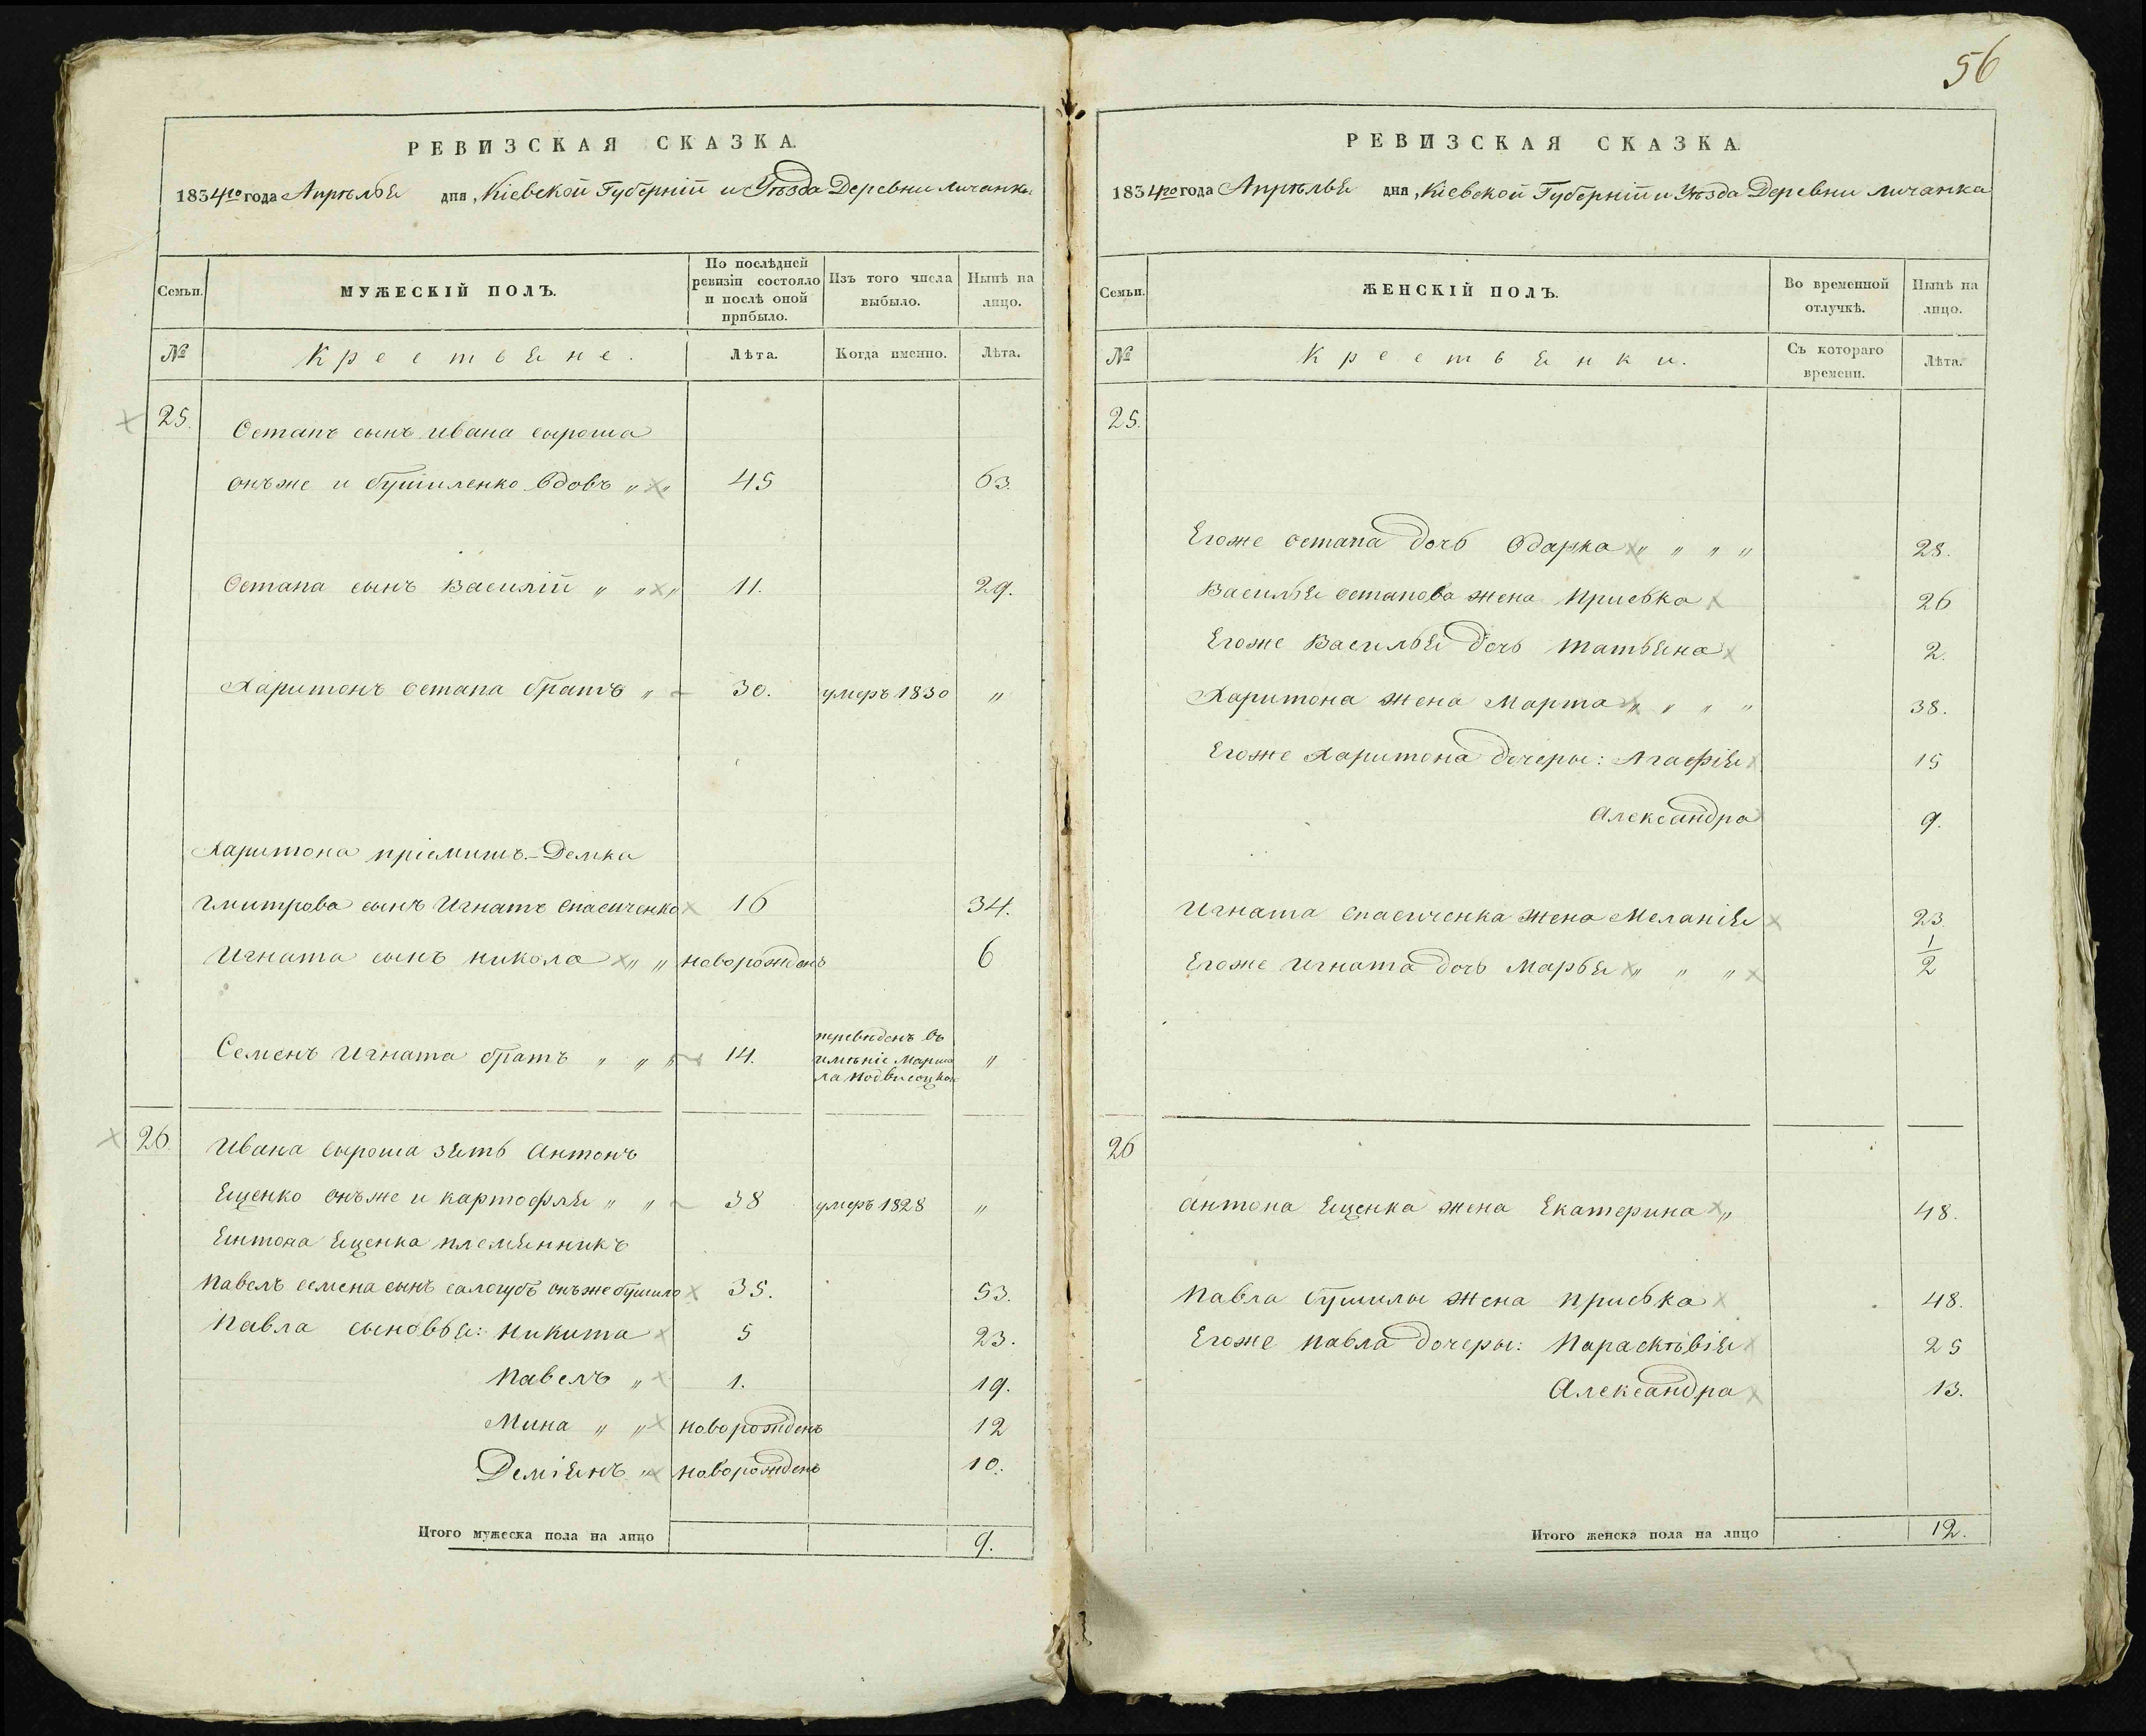 РЕВИЗСКАЯ СКАЗКА.
1834го года Апрѣлья дня, Кіевской Губерніи и Уѣзда Деревни Личанки
Семьи.
МУЖЕСКІЙ ПОЛЪ.
По послѣдней ревизіи состояло и послѣ оной прибыло.
Изъ того числа выбыло.
Нынѣ на лицо.
№
Крестьяне.
Лѣта.
Когда именно.
Лѣта.
25.
Остапъ сынъ ивана сыроша
онъже и бушиленко вдовъ „ „ 45 53.
Остапа сынъ василій „ „ „ 11. 29.
Харитонъ остапа братъ „ 30. умеръ 1830 „
Харитона пріемишъ.- Демка
Гмитрова сынъ Игнатъ спасиченко 16 34.
Игната сынъ никола „ „ новорожденъ 6
Семенъ игната братъ „ „ „ 14. переведенъ въ „
имѣніе
26.
Ивана сыроша зять антонъ
Ященко онъже и картофля „ „ 38 умеръ 1828 „
Янтона ященка племянникъ
павелъ семена сынъ салогубъ онъже бушило 35. 53.
Павла сыновья: никита 5 23.
павелъ „ 1. 19.
Мина „ „ новорожденъ 12
Деміянъ „ новорожденъ 10.
Итого мужеска пола на лицо 9.
56
РЕВИЗСКАЯ СКАЗКА.
1834го года Апрѣлья дня, Кіевской Губерніи и Уѣзда Деревни личанка
Семьи.
ЖЕНСКІЙ ПОЛЪ.
Во временной отлучкѣ.
Нынѣ на лицо.
№
Крестьянки.
Съ котораго времени.
Лѣта.
25.
Егоже остапа дочь Одарка „ „ „ „ 28.
Василья остапова жена приська 26
Егоже василья дочь татьяна 2.
Харитона жена марта „ „ „ „ 38.
Егоже харитона дочеры: Агафія 15
Александра 9.
Игната спасиченка жена Меланія 23
Егоже игната дочь марья „ „ „ 1/2
26
антона ященка жена Екатерина „ 48.
Павла бушилы жена приська 48.
Егоже павла дочеры: Параскѣвія 25
Александра 13.
Итого женска пола на лицо 12.